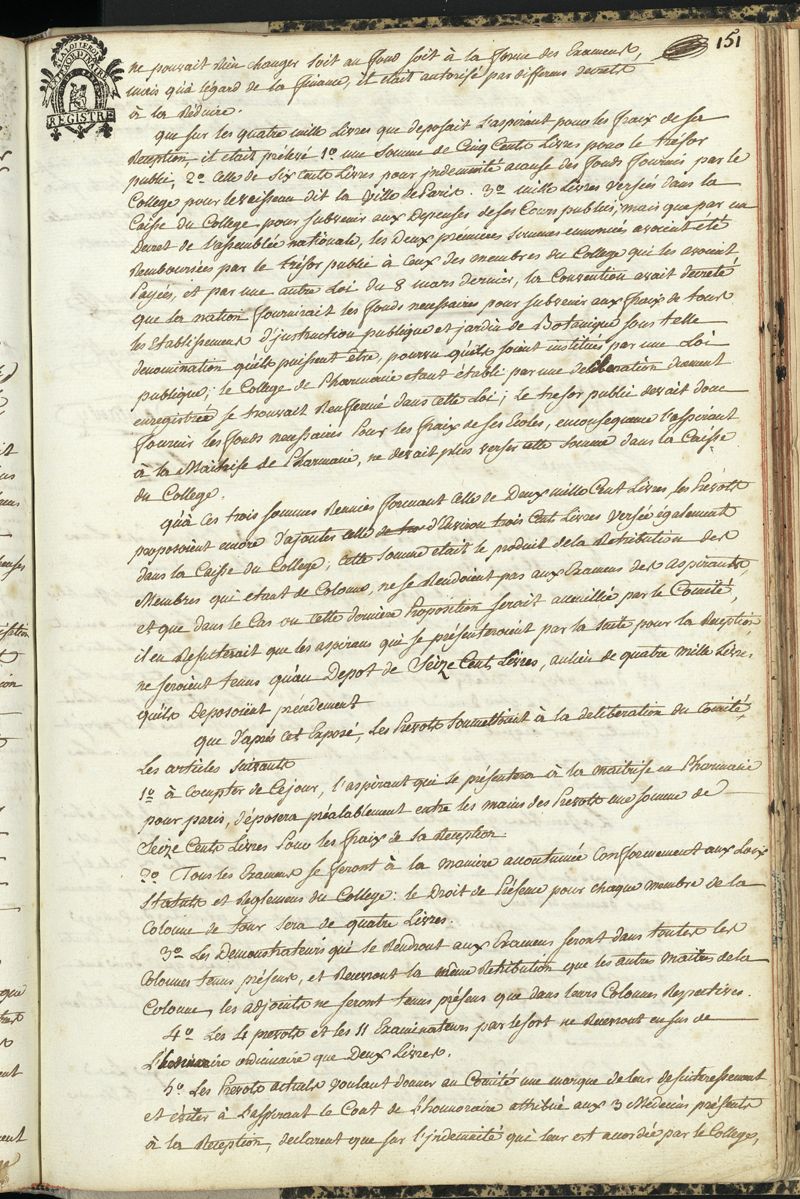 151
LA LOI ET LE ROI
EXTRAORDINAIRE
REGISTRE
ne pouvait Rien changer soit au fond soit à la forme des Examens,
mais qu'à l'égard de la finance, il était autorisé par differens decrets
à la Réduire.
que sur les quatre mille Livres que deposait L'aspirant pour les fraix de sa
Reception, il était prélevé 1º une somme de Cinq Cents Livres pour le trésor
public, 2º Celle de six Cents Livres pour indemnité acause des fonds fournis par le
College pour le vaisseau dit la Ville de Paris. 3º mille Livres versées dans la
Caisse du College pour subvenir aux Depenses de ses Cours publics; mais que par un
Decret de l'assemblée nationale, les Deux premières sommes enoncées avoient été
Remboursées par le trésor public à Ceux des membres du College qui les avoient
Payées, et par une autre Loi du 8 mars dernier, la Convention avait decrété
que la nation fournirait les fonds necessaires pour subvenir aux fraix de tous
les Etablissemens d'instruction publique et jardin de Botanique sous telle
denomination qu'ils puissent être, pourvu qu'ils soient institués par une Loi
publique; le College de Pharmacie etant établi par une deliberation duement
enregistrée se trouvait Renfermé dans cette Loi; Le tresor public devait donc
fournir les fonds necessaires Pour les fraix de ses Ecoles, enconsequence l'aspirant
à la Maitrise de Pharmacie, ne devait plus verser cette somme dans la Caisse
du College.
qu'à Ces trois sommes Reunies formant celle de Deux mille Cent Livres, les Prévots
proposoient encore d'ajouter celle de trois d'Environ trois Cent Livres versée également
dans la Caisse du College; cette somme était le produit de la Retribution des
Membres qui etant de Colonne, ne se Rendoient pas aux Examens des aspirants,
et que dans le Cas ou cette dernière Proposition serait accueillie par le Comité,
il en Resulterait que les aspirans qui se présenteroient par la suite pour la Reception
ne seroient tenus qu'au Depot de Seize Cent Livres, aulieu de quatre mille Livres
qu'ils Deposoient précedement
que d'après cet Exposé, Les Prevots soumettoient à la deliberation du Comité,
Les articles suivants
1º à Compter de Cejour, l'aspirant qui se présentera à la maitrise en Pharmacie
pour paris, déposera préalablement entre les mains des Prevots une somme de
Seize Cents Livres pour les fraix de sa Reception.
2º Tous les Examens se feront à la manière accoutumée Conformement aux Loix
Statuts et Reglemens du College: le Droit de Présence pour chaque membre de la
Colonne de tour sera de quatre Livres.
3º Les Demonstrateurs qui se Rendront aux Examens seront dans toutes les
Colonnes tenus présens, et Recevront la même Retribution que les autres maitres de la
Colonne, les adjoints ne seront tenus présens que dans leurs Colonnes Respectives.
4º Les 4 prevots et les 11 Examinateurs par le sort ne Recevront en sus de
L'honoraire ordinaire que Deux Livres.
5º Les Prevots actuels voulant donner au Comité une marque de leur desinteressement
et eviter à L'aspirant le Cout de L'honoraire attribué aux 3 Medecins présents
à la Reception, declarent que sur l'indemnité qui leur est accordée par le College,